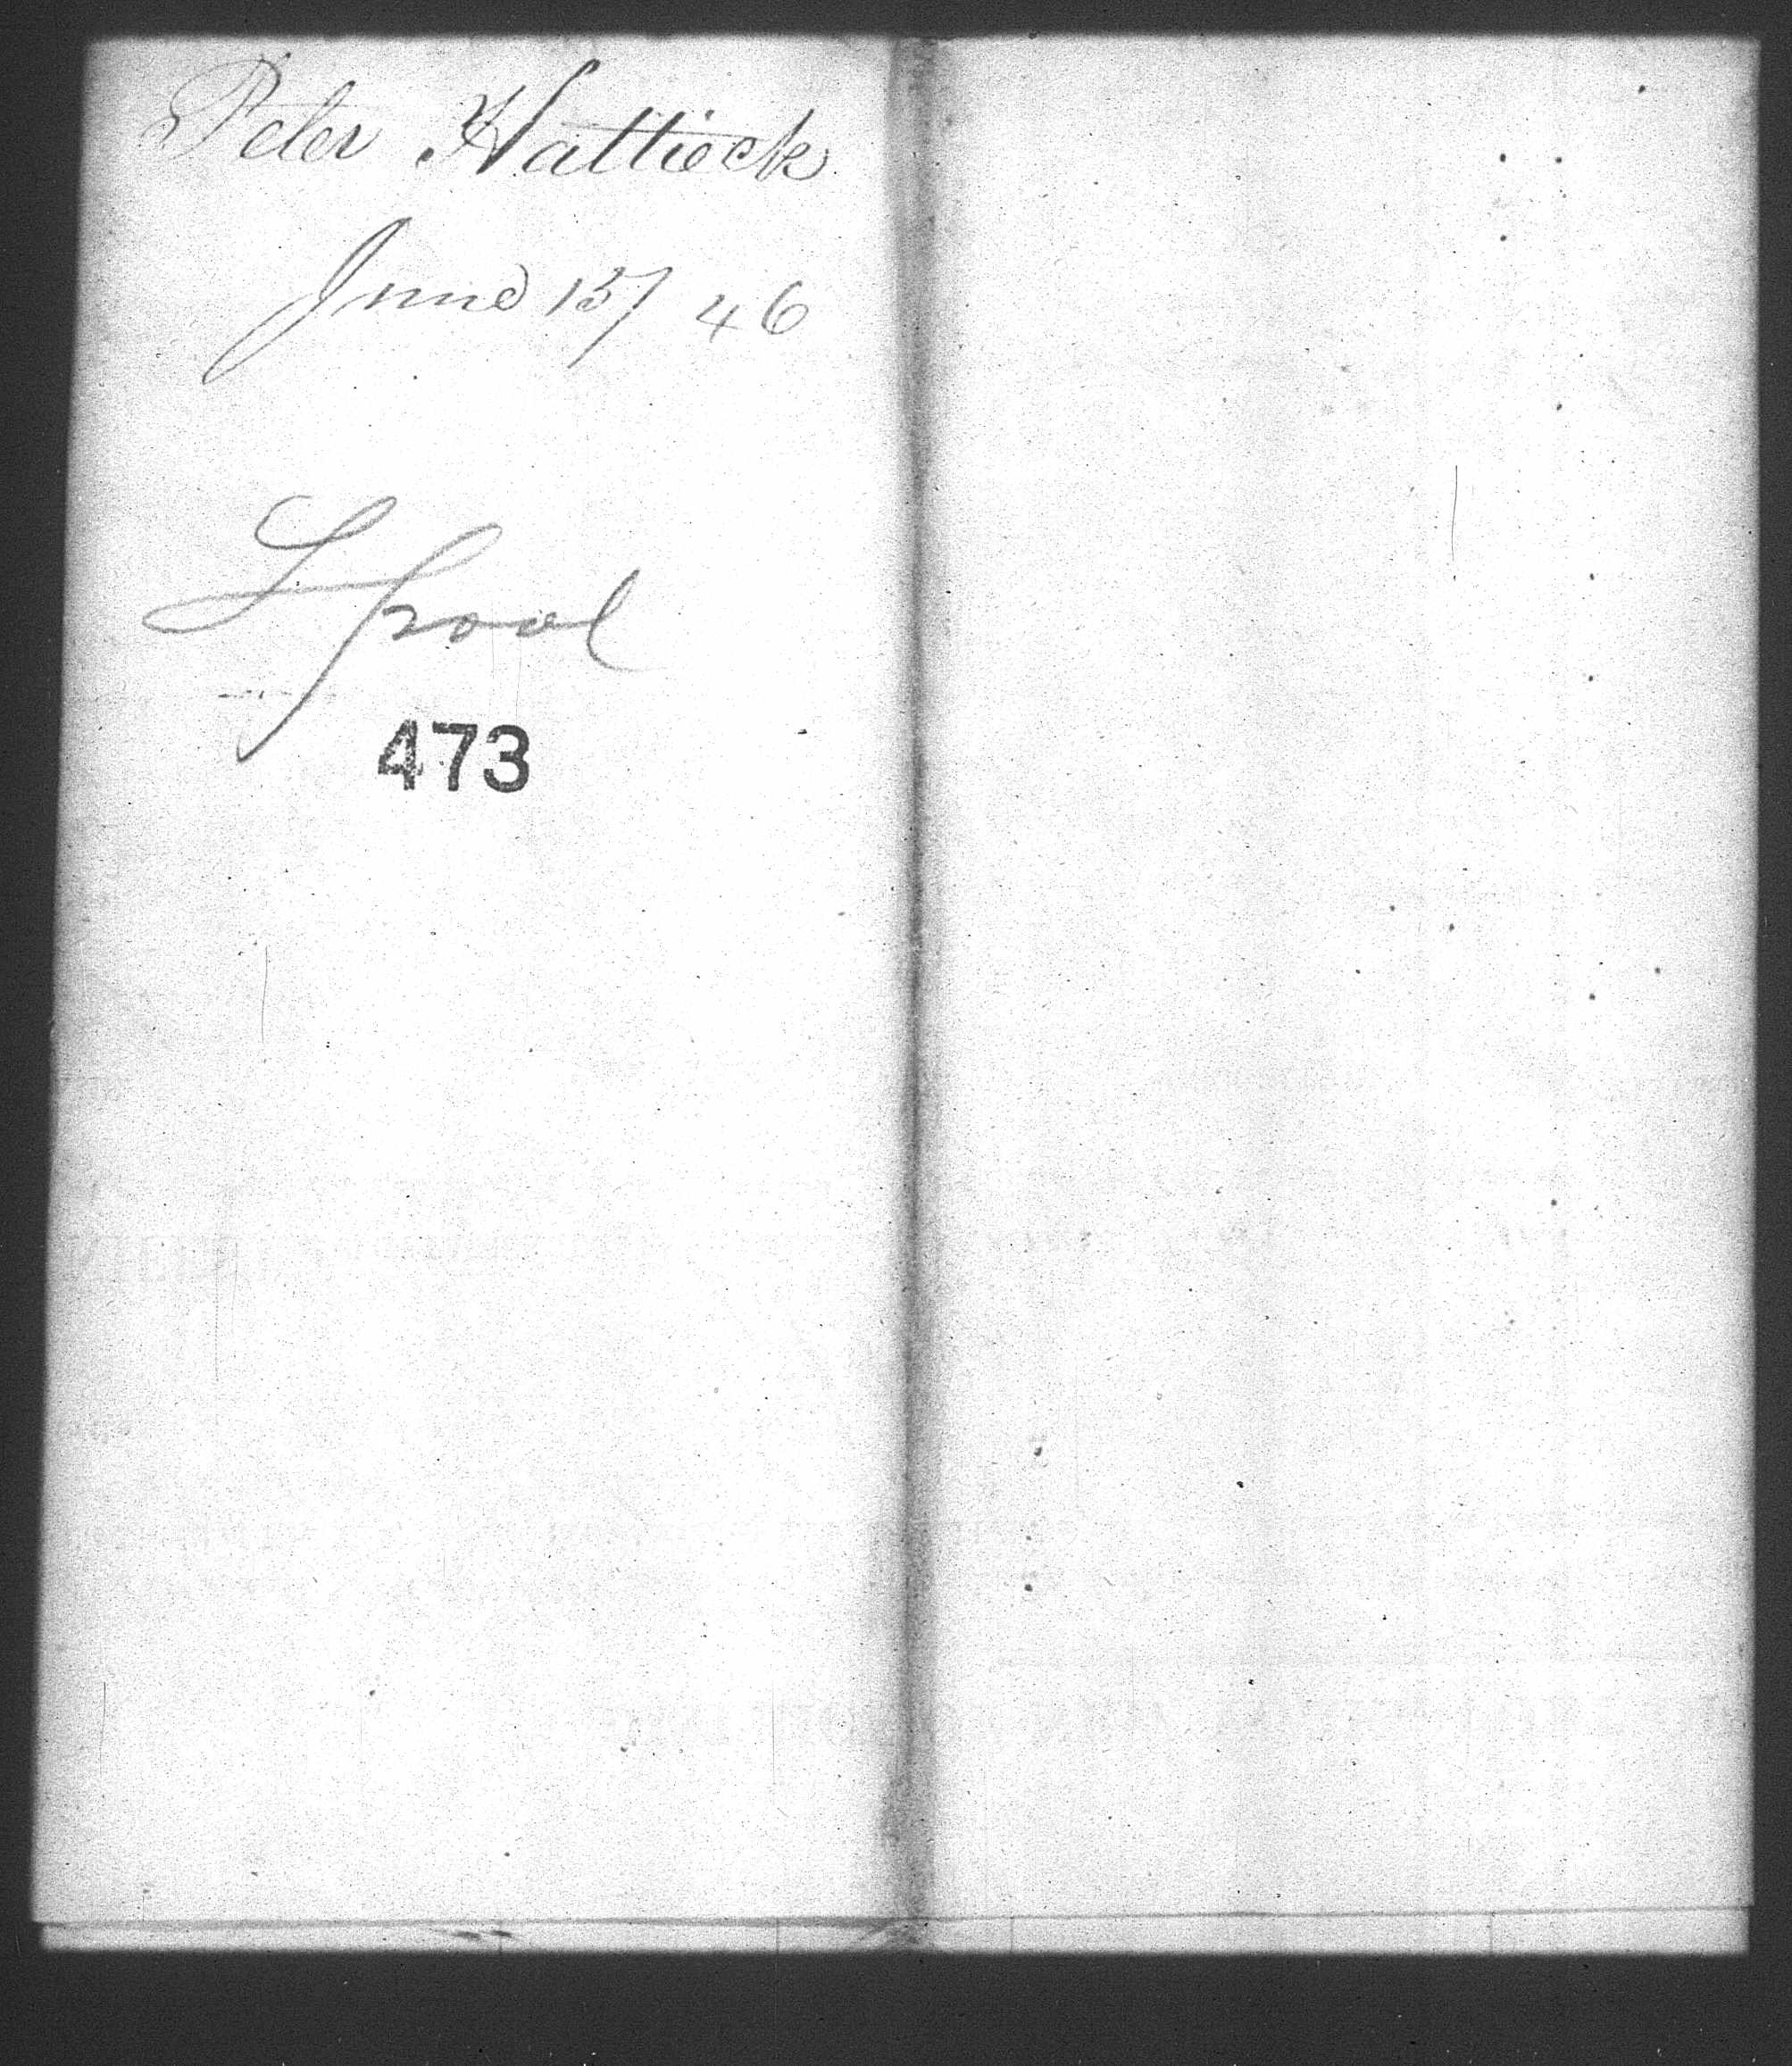 Peter Hattick
June 15/ 46
L pool
473